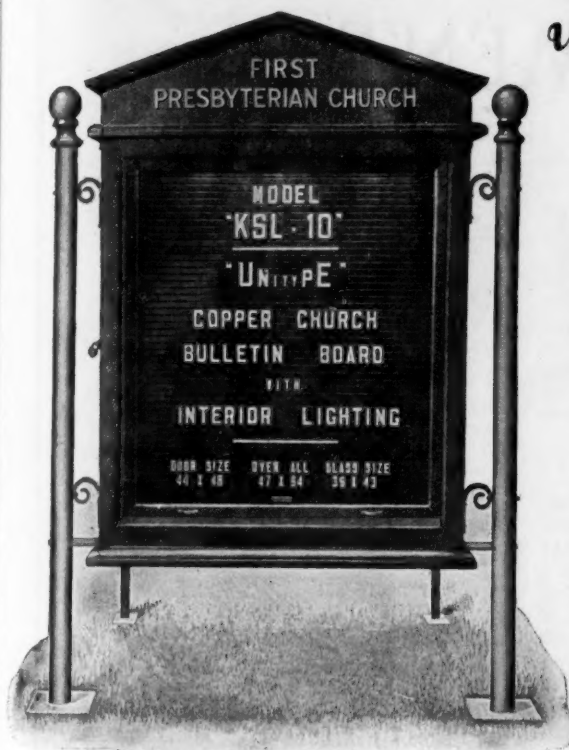 FIRST
PRESBYTERIAN CHURCH
MODEL
"KSL-10"
"UNITYPE"
COPPER CHURCH
BULLETIN BOARD
WITH
INTERIOR LIGHTING
DOOR SIZE OVER ALL GLASS SIZE
44 X 48